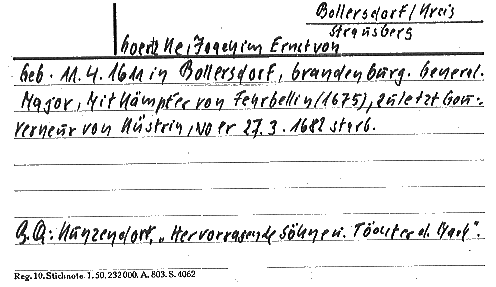 Bollersdorf/Kreis
Strausberg
Goertzke, Joachim Ernst von
Geb. 11.4.1611 in Bollersdorf, brandenburg. General-
Major, Mitkämpfer von Fehrbellin (1675), zuletzt Gou-
verneur von Küstrin, wo er 27.3.1682 starb.
B.Q.: Kunzendorf, "Hervorragende Söhne u. Töchter d. Mark".
Reg. 10. Stichnote. 1. 50, 232000. A. 803. S. 4062